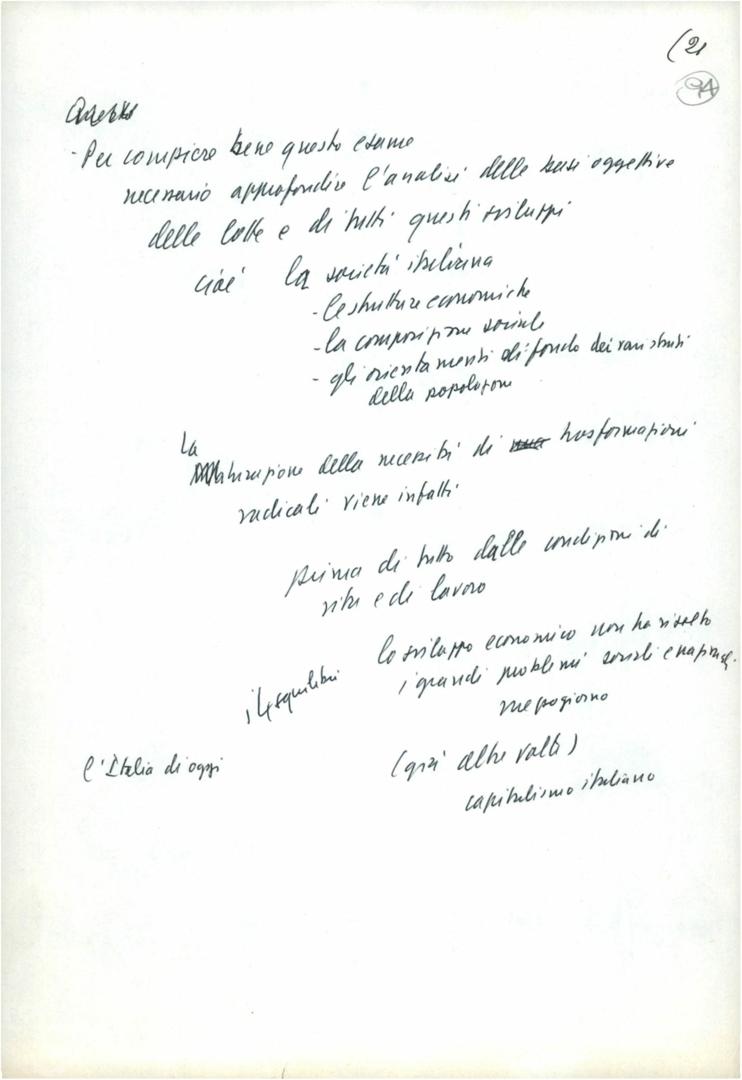 (21
94
- Per compiere bene questo esame
necessario approfondire l'analisi delle basi oggettive
delle lotte e di tutti questi sviluppi
cioè la società italiana
- le strutture economiche
- la composizione sociale
- gli orientamenti di fondo dei vari strati
della popolazione
La
Maturazione della necessità di trasformazioni
radicali viene infatti
prima di tutto dalle condizioni di
vita e di lavoro
lo sviluppo economico non ha risolto
i grandi problemi sociali e nazionali.
squilibri
mezzogiorno
l'Italia di oggi
(già altre volte)
capitalismo italiano